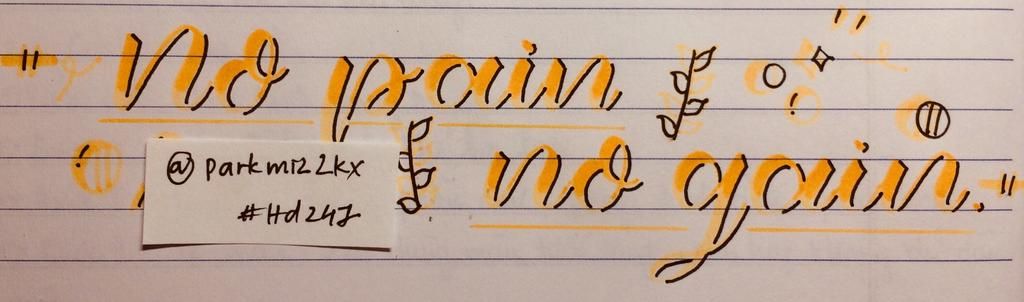 " No pain
no gain. "
@parkmizzkx
#Hd24J